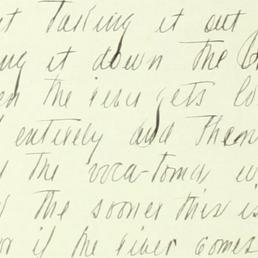 t taking it out
ng it down the
en the river gets lo
entirely and then
the
the sooner this is
or if the river comes